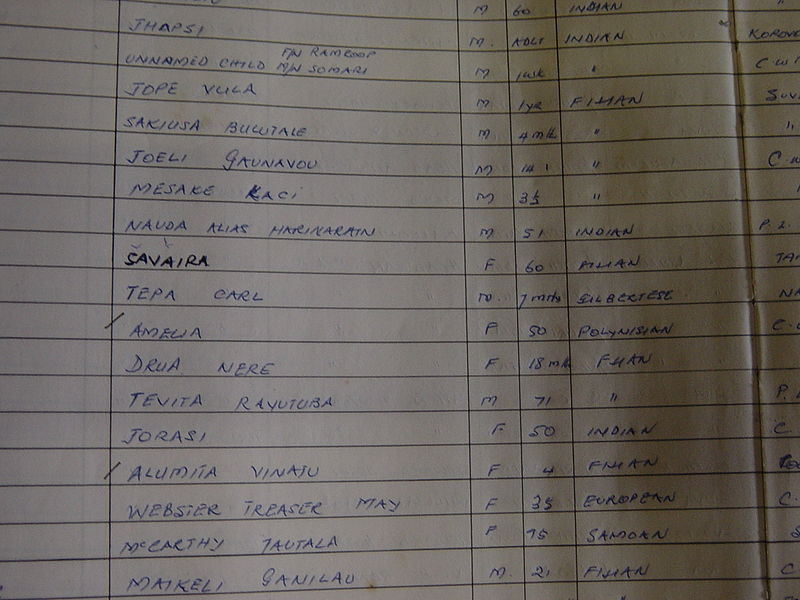 M 60 INDIAN "
JHAPSI M. ADLT INDIAN KOROVO
UNNAMED CHILD F/N RAMROOP M/N SOMARI M 1wk " C.W
JOPE VULA M 1yr FIJIAN SUV
SAKIUSA BULUTALE M 4 mth " "
JOELI GAUNAVOU M 14 " C.W
MESAKE KACI M 35 "
NAUDA ALIAS HARINARAIN M 51 INDIAN P.
SAVAIRA F 60 FIJIAN TA
TEPA CARL M. 7 mths GILBERTESE NA
AMELIA F 50 POLYNISIAN C.
DRUA NERE F 18 mth FIJIAN
TEVITA RAYUTUBA M 71 " P.
JORASI F 50 INDIAN C.
ALUMITA VINATU F 4 FIJIAN
WEBSTER TREASER MAY F 35 EUROPEAN C.
McCARTHY TAUTALA F 75 SAMOAN S
MAIKELI GANILAU M. 21 FIJIAN C
"